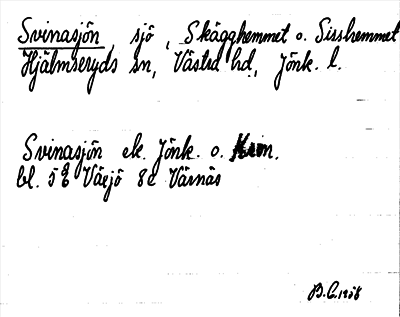 Svinasjön, sjö, Skägghemmet o. Sisshemmet
Hjälmseryds sn, Västra hd., Jönk. l.
Svinasjön ek. Jönk. o. Kron.
bl. 5 Växjö 8c Värnäs
B.C. 1958